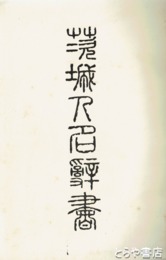 茨城人名辞書
とらや書店